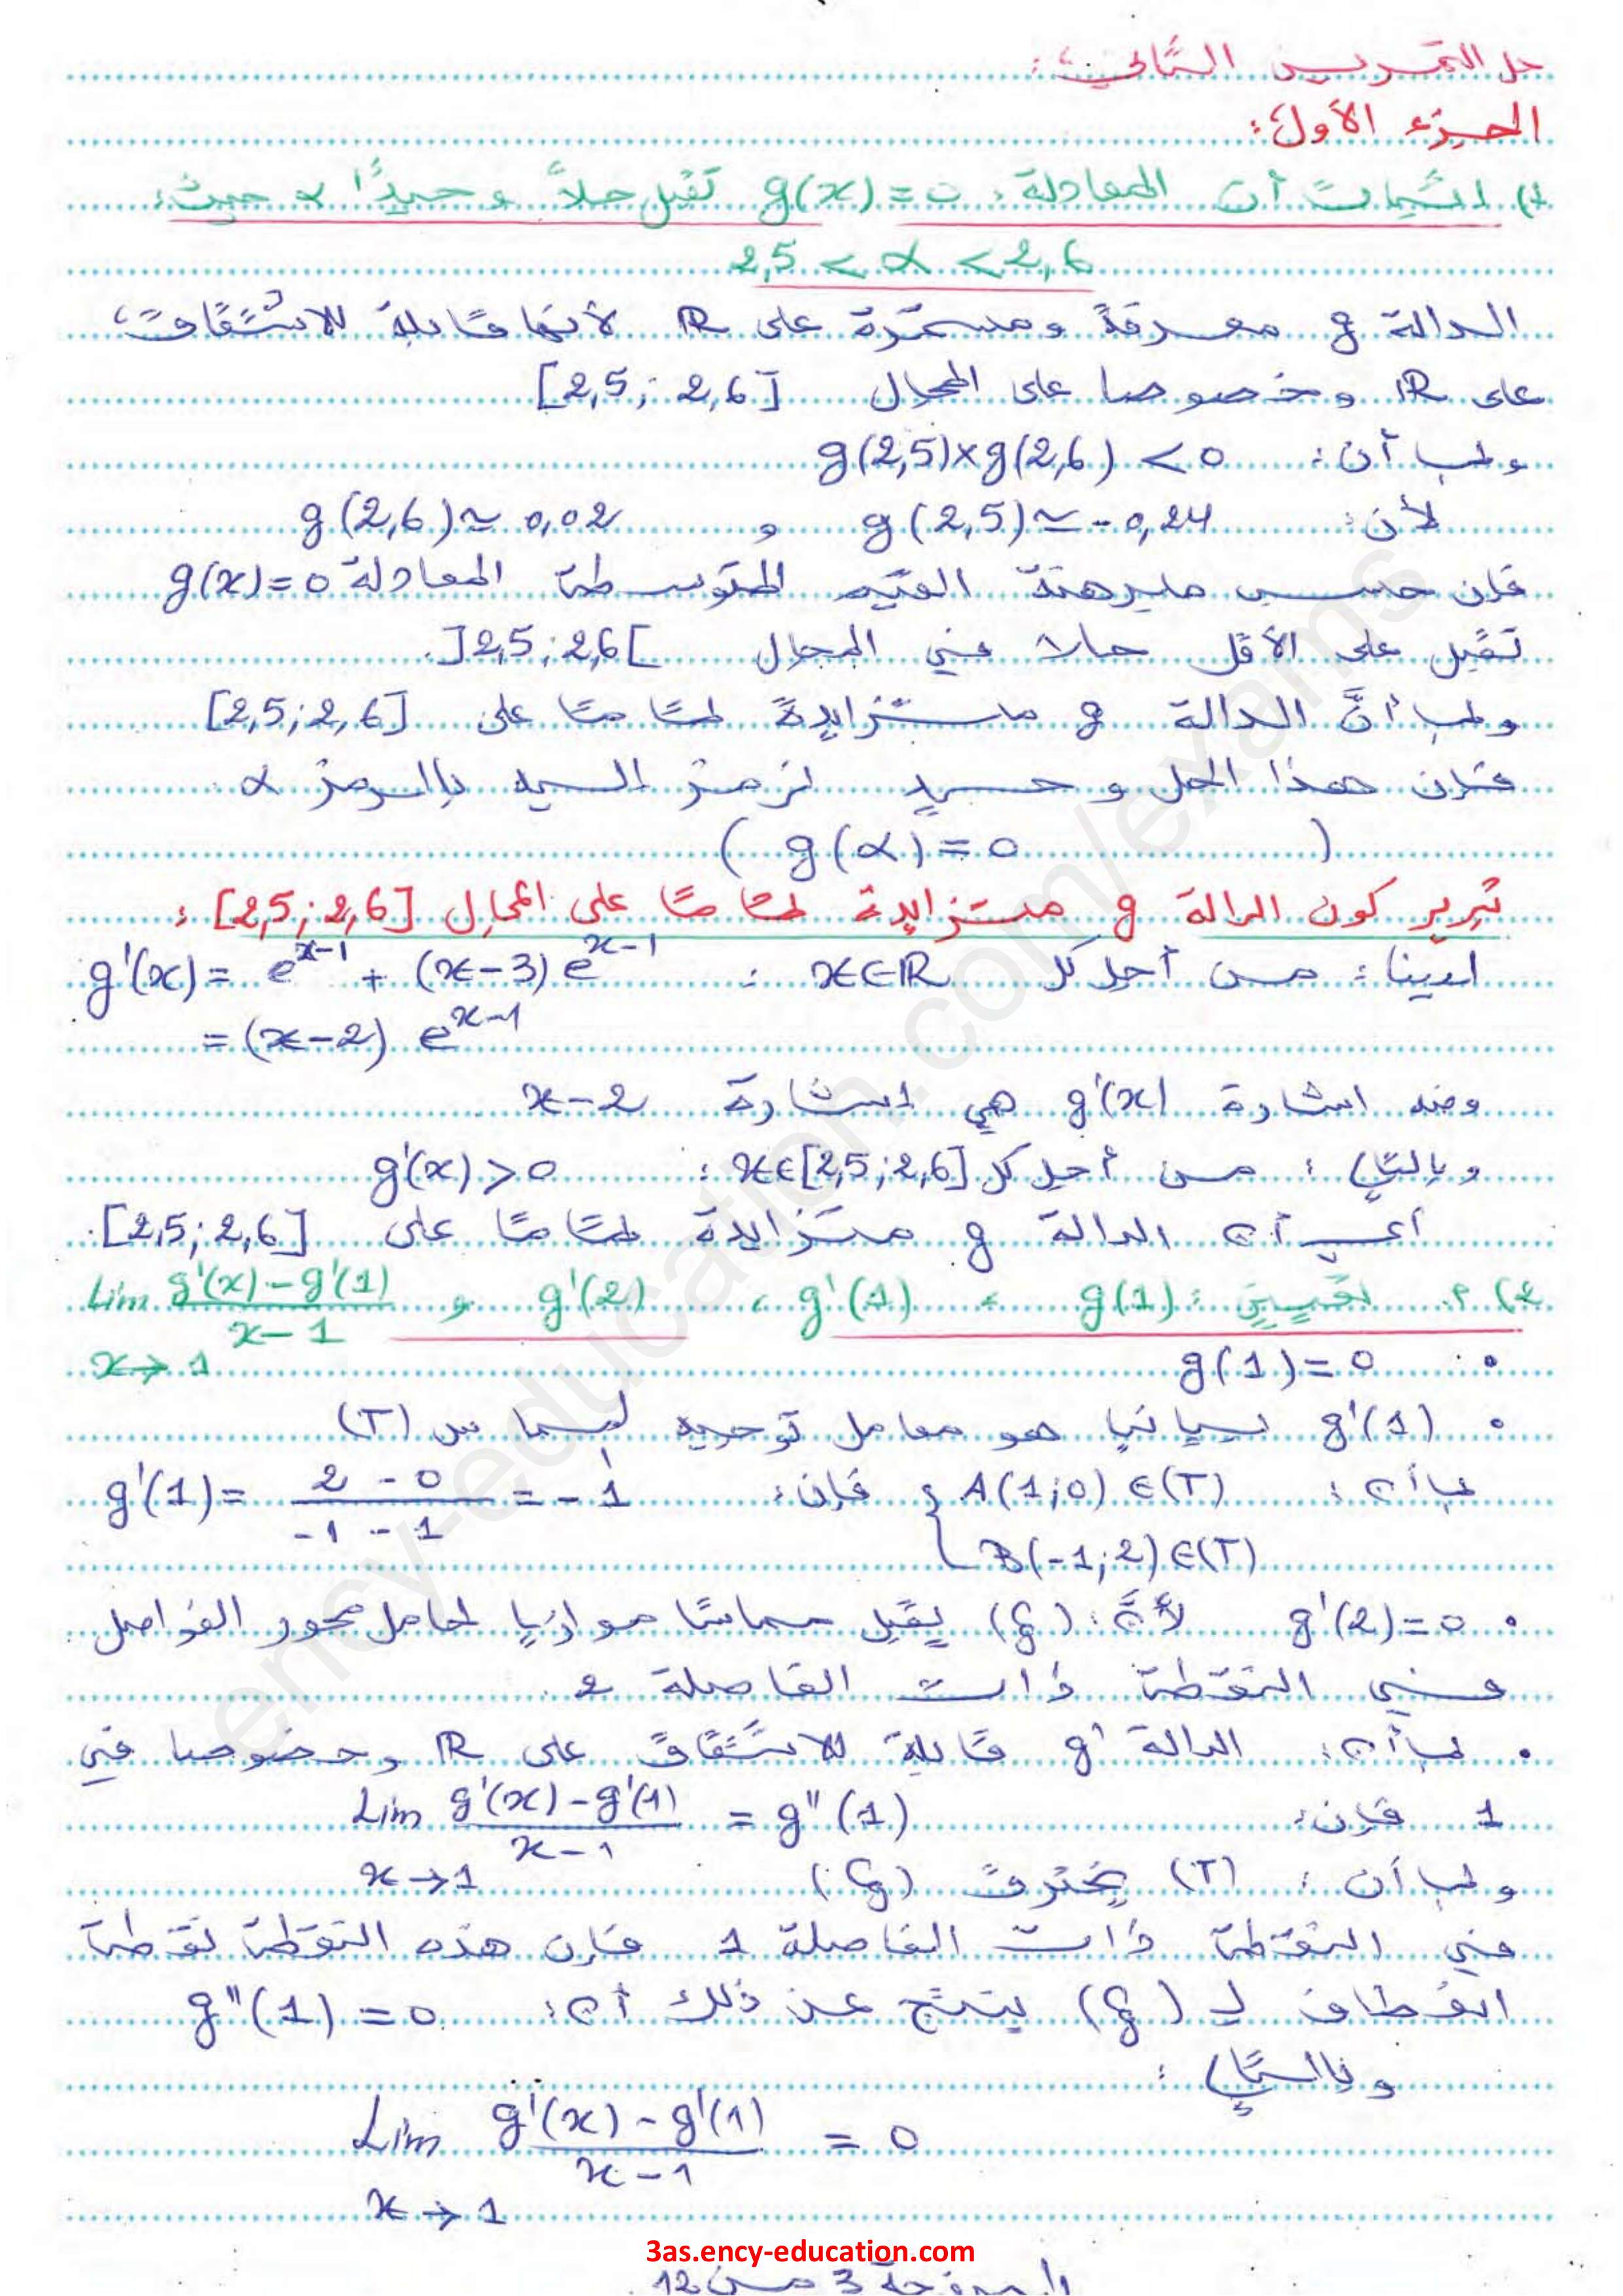 حل التمرين الثاني:
الجزء الأول:
1) اثبات أن المعادلة: g(x)=0 تقبل حلاً وحيدًا α حيث:
2,5 < α < 2,6
الدالة g معرفة ومستمرة على ℝ لأنها قابلة للاشتقاق
على ℝ وخصوصا على المجال [2,5 ; 2,6]
وبما أن: g(2,5)×g(2,6) < 0
لأن: g(2,5) ≃ -0,24 و g(2,6) ≃ 0,02
فإن حسب مبرهنة القيم المتوسطة المعادلة g(x)=0
تقبل على الأقل حلا في المجال ]2,5 ; 2,6[.
وبما أنَّ الدالة g متزايدة تماما على [2,5 ; 2,6]
فإن هذا الحل وحيد نرمز إليه بالرمز α
( g(α)=0 )
تبرير كون الدالة g متزايدة تمامًا على المجال [2,5 ; 2,6] :
لدينا: من أجل كل x∈ℝ : g'(x) = e^{x-1} + (x-3) e^{x-1}
= (x-2) e^{x-1}
ومنه اشارة g'(x) هي اشارة x-2
وبالتالي: من أجل كل x∈[2,5 ; 2,6] : g'(x) > 0
أي أن الدالة g متزايدة تمامًا على [2,5 ; 2,6].
2) أ. تعيين: g(1) ، g'(1) ، g'(2) و Lim_{x→1} (g'(x)-g'(1))/(x-1)
• g(1)=0
• g'(1) بيانيا هو معامل توجيه لمماس (T)
بما أن: { A(1;0)∈(T) فإن: g'(1) = (2-0)/(-1-1) = -1
B(-1;2)∈(T)
• g'(2)=0 لأنَّ: (Cg) يقبل مماسًا موازيا لحامل محور الفواصل
في النقطة ذات الفاصلة 2.
• بما أن: الدالة g' قابلة للاشتقاق على ℝ وخصوصا في
1 فإن: Lim_{x→1} (g'(x)-g'(1))/(x-1) = g''(1)
وبما أن: (T) يخترق (Cg)
في النقطة ذات الفاصلة 1 فإن هذه النقطة نقطة
انعطاف لـ (Cg) ينتج عن ذلك أن: g''(1) = 0
وبالتالي:
Lim_{x→1} (g'(x)-g'(1))/(x-1) = 0
3as.ency-education.com
الصفحة 3 من 12
ency-education.com/exams